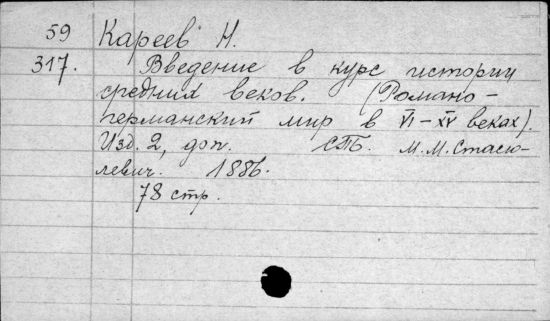 59 Кареев Н.
317. Введение в курс истории
средних веков. (Романо-
германский мир в VI-XV веках).
Изд. 2, доп. СПБ. М.М. Стасю-
левич. 1886.
78 стр.